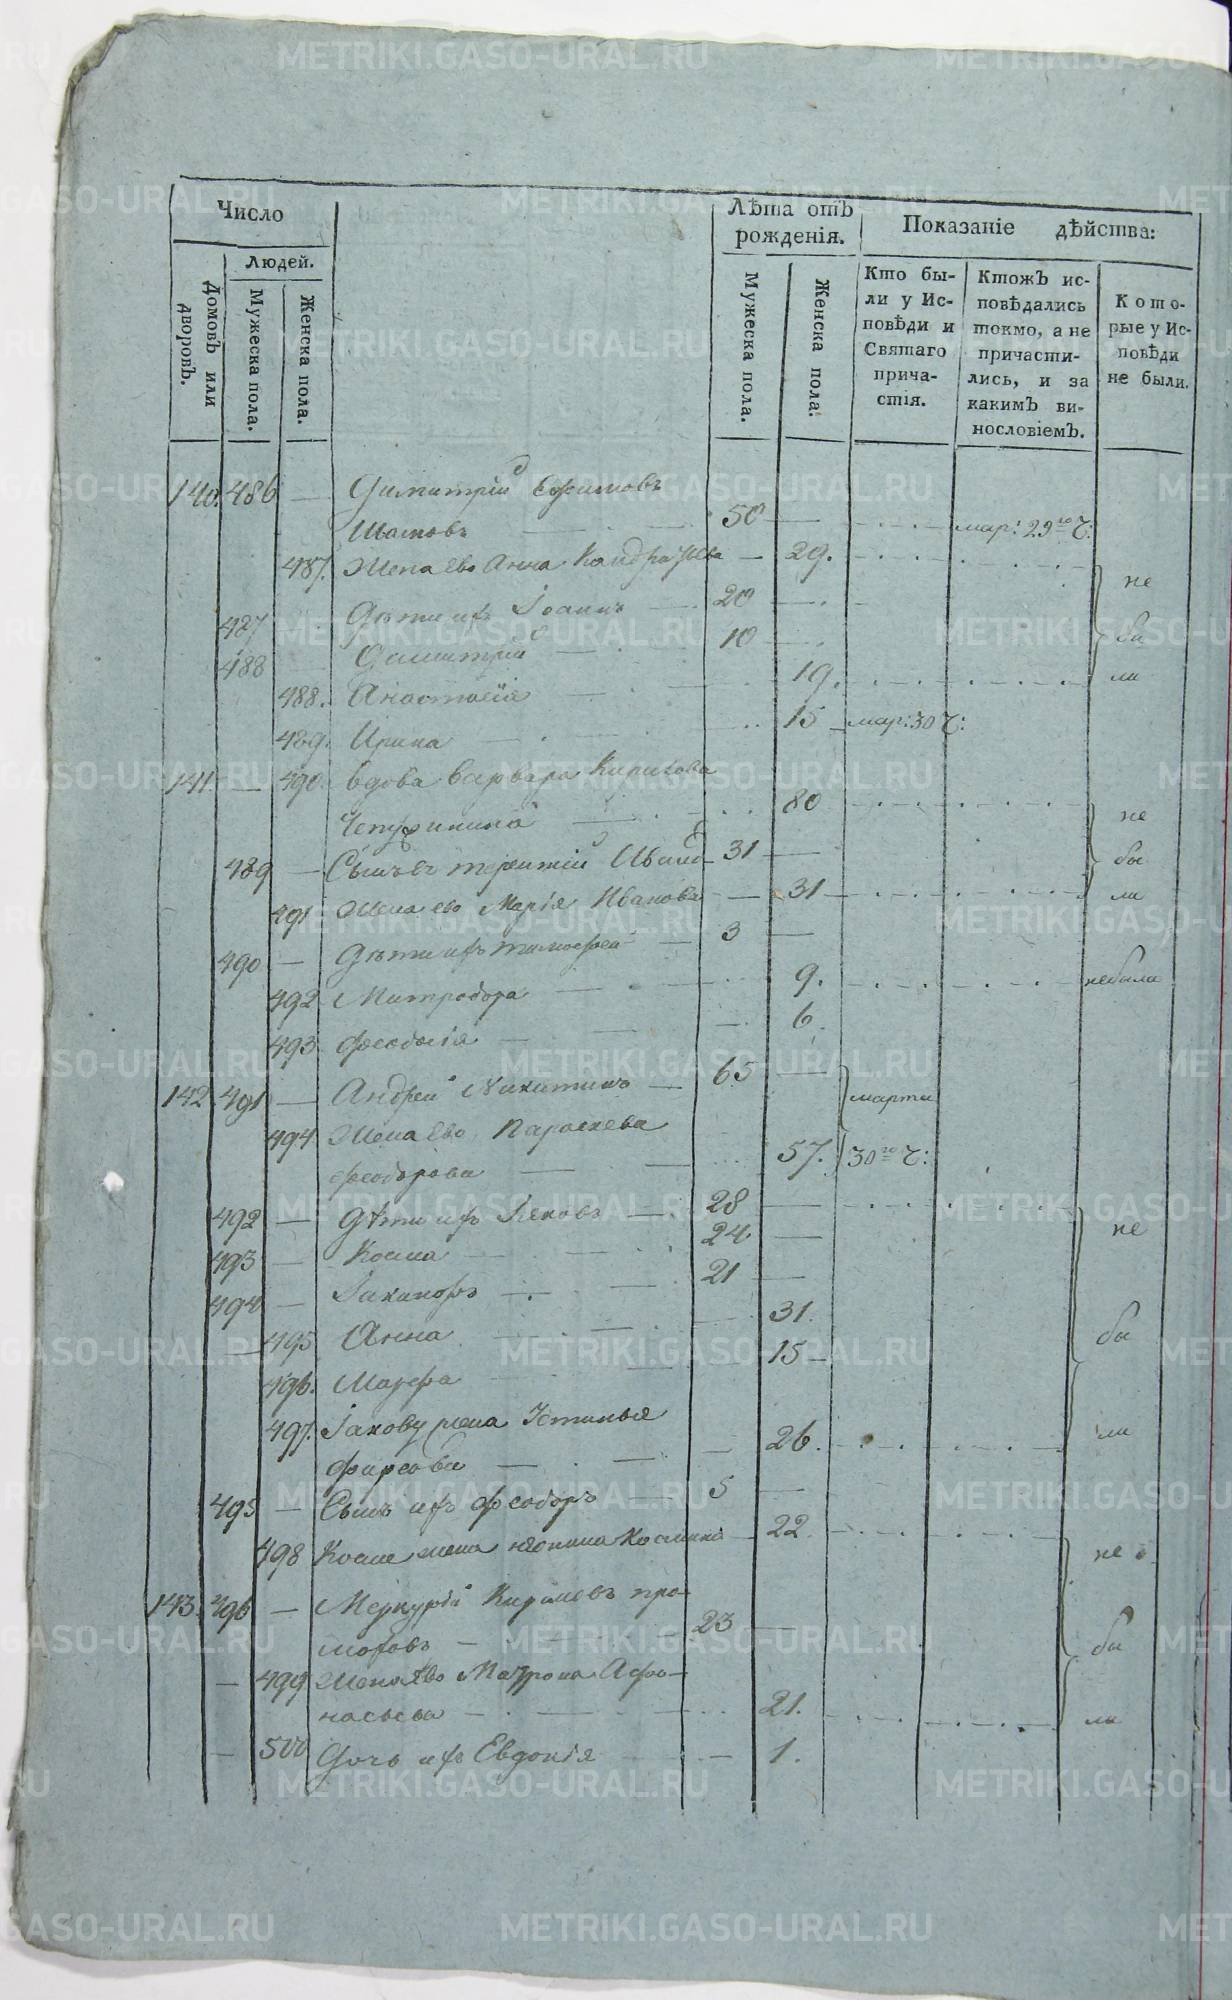 Число
Людей.
Домовъ или дворовъ.
Мужеска пола.
Женска пола.
Лѣта отъ рожденія.
Мужеска пола.
Женска пола.
Показаніе дѣйства:
Кто были у Исповѣди и Святаго причастія.
Ктожъ исповѣдались токмо, а не причастились, и за какимъ винословіемъ.
Которые у Исповѣди не были.
140. 486 — Димитрій Ефимовъ
50 — мар: 29го ч:
487. Жена Ево Анна — 29.
487 Дѣти ихъ Іоаннъ — 20 —
488 — Димитрій — 10 —
488. Анастасія — 19.
489. Ирина — 15 мар: 30 ч:
не
бы
ли
141. — 490 вдова Варвара Кирилова
80
489 — Сынъ ея терентій Ивано 31 —
491 Жена ево Марія Иванова — 31
не
бы
ли
490 — Дѣти ихъ тимофей — 3 —
492 Митродора — 9. небыли
493 Феодосія — 6
142 491 — Андрей Никитинъ — 65 —
494 Жена Ево Параскева
Феодорова — 57.
марта
30го ч:
492 — Дѣти ихъ Іяковъ — 28 —
493 — Косма — 24 —
494 — 21 —
495 Анна — 31.
496. Мавра 15
497. Іакову жена Устинья
Фирсова — 26.
не
бы
ли
495 — Сынъ ихъ Феодоръ 5 —
498 Косме жена 22.
143. 496 — Меркурій
23 —
— 499 Жена Ево Матрона Афо-
насьева — 21.
— 500 Дочь ихъ Евдокія — 1.
не
бы
ли
METRIKI.GASO-URAL.RU